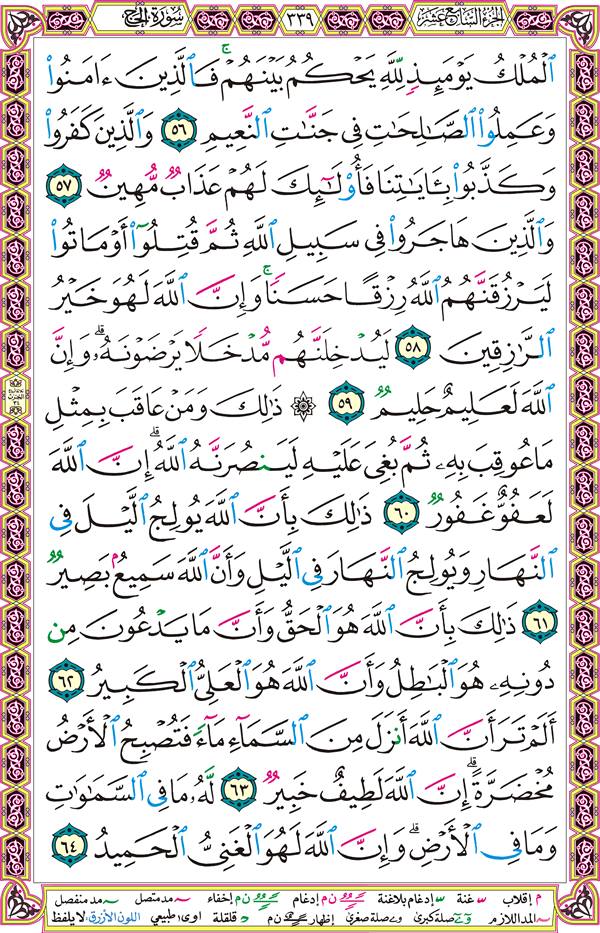 الجزء السابع عشر ٣٣٩ سورة الحج
ٱلْمُلْكُ يَوْمَئِذٍ لِّلَّهِ يَحْكُمُ بَيْنَهُمْ ۚ فَٱلَّذِينَ ءَامَنُوا۟
وَعَمِلُوا۟ ٱلصَّٰلِحَٰتِ فِى جَنَّٰتِ ٱلنَّعِيمِ ٥٦ وَٱلَّذِينَ كَفَرُوا۟
وَكَذَّبُوا۟ بِـَٔايَٰتِنَا فَأُو۟لَٰٓئِكَ لَهُمْ عَذَابٌ مُّهِينٌ ٥٧
وَٱلَّذِينَ هَاجَرُوا۟ فِى سَبِيلِ ٱللَّهِ ثُمَّ قُتِلُوٓا۟ أَوْ مَاتُوا۟
لَيَرْزُقَنَّهُمُ ٱللَّهُ رِزْقًا حَسَنًا ۚ وَإِنَّ ٱللَّهَ لَهُوَ خَيْرُ
ٱلرَّٰزِقِينَ ٥٨ لَيُدْخِلَنَّهُم مُّدْخَلًا يَرْضَوْنَهُۥ ۗ وَإِنَّ
ٱللَّهَ لَعَلِيمٌ حَلِيمٌ ٥٩ ۞ ذَٰلِكَ وَمَنْ عَاقَبَ بِمِثْلِ
مَا عُوقِبَ بِهِۦ ثُمَّ بُغِىَ عَلَيْهِ لَيَنصُرَنَّهُ ٱللَّهُ ۗ إِنَّ ٱللَّهَ
لَعَفُوٌّ غَفُورٌ ٦٠ ذَٰلِكَ بِأَنَّ ٱللَّهَ يُولِجُ ٱلَّيْلَ فِى
ٱلنَّهَارِ وَيُولِجُ ٱلنَّهَارَ فِى ٱلَّيْلِ وَأَنَّ ٱللَّهَ سَمِيعٌۢ بَصِيرٌ
٦١ ذَٰلِكَ بِأَنَّ ٱللَّهَ هُوَ ٱلْحَقُّ وَأَنَّ مَا يَدْعُونَ مِن
دُونِهِۦ هُوَ ٱلْبَٰطِلُ وَأَنَّ ٱللَّهَ هُوَ ٱلْعَلِىُّ ٱلْكَبِيرُ ٦٢
أَلَمْ تَرَ أَنَّ ٱللَّهَ أَنزَلَ مِنَ ٱلسَّمَآءِ مَآءً فَتُصْبِحُ ٱلْأَرْضُ
مُخْضَرَّةً ۗ إِنَّ ٱللَّهَ لَطِيفٌ خَبِيرٌ ٦٣ لَّهُۥ مَا فِى ٱلسَّمَٰوَٰتِ
وَمَا فِى ٱلْأَرْضِ ۗ وَإِنَّ ٱللَّهَ لَهُوَ ٱلْغَنِىُّ ٱلْحَمِيدُ ٦٤
م إقلاب غنة إدغام بلاغنة ن م إدغام ن م إخفاء مد متصل مد منفصل
المد اللازم صلة كبرى صلة صغرى إظهار ن م قلقلة اوى طبيعي اللون الأزرق لا يلفظ